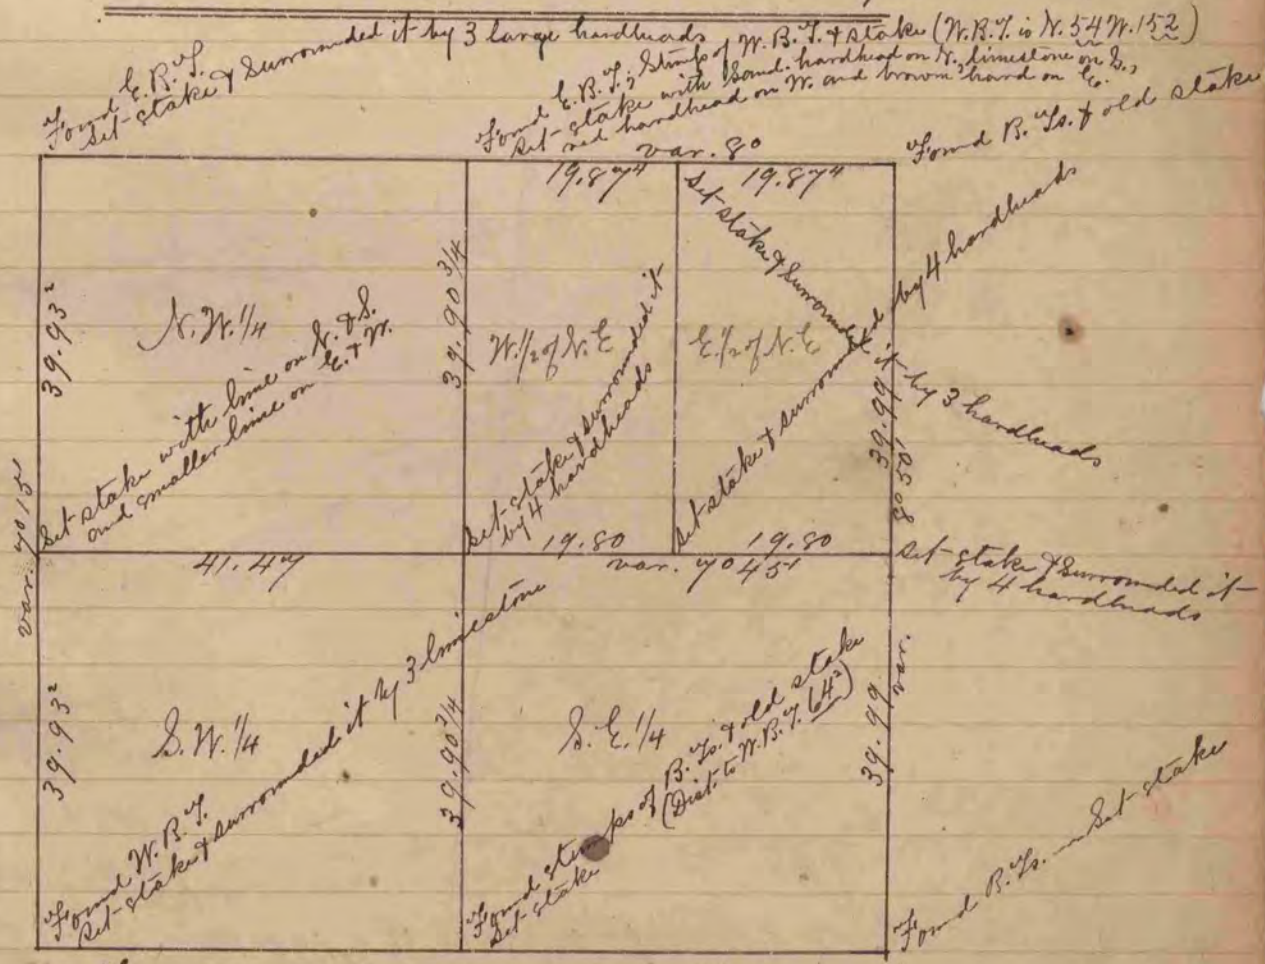 Found E.B.T.
Set stake & surrounded it by 3 large hardheads
Found E.B.T.; Stump of W.B.T. & stake (W.B.T. is N. 54 W. 152)
Set stake with sand. hardhead on N., limestone on S.,
red hardhead on W. and brown hard on E.
Found B.Ts. & old stake
var. 8°
19.87⁴
19.87⁴
Set stake & surrounded it by 3 hardheads
39.93²
N.W. 1/4
39.90 3/4
W. 1/2 of N.E
E. 1/2 of N.E
39.99
8° 50'
Set stake with lime on N. & S.
and smaller lime on E. & W.
Set stake & surrounded it
by 4 hardheads
Set stake & surrounded by 4 hardheads
var. 7° 15'
41.47
19.80
19.80
var. 7° 45'
Set stake & surrounded it
by 4 hardheads
39.93²
S.W. 1/4
39.90 3/4
S.E. 1/4
39.99
var.
Found W.B.T.
Set stake & surrounded it by 3 limestone
Found stumps of B.Ts. & old stake
Set stake
(Dist. to W.B.T. 64²)
Found B.Ts. Set stake